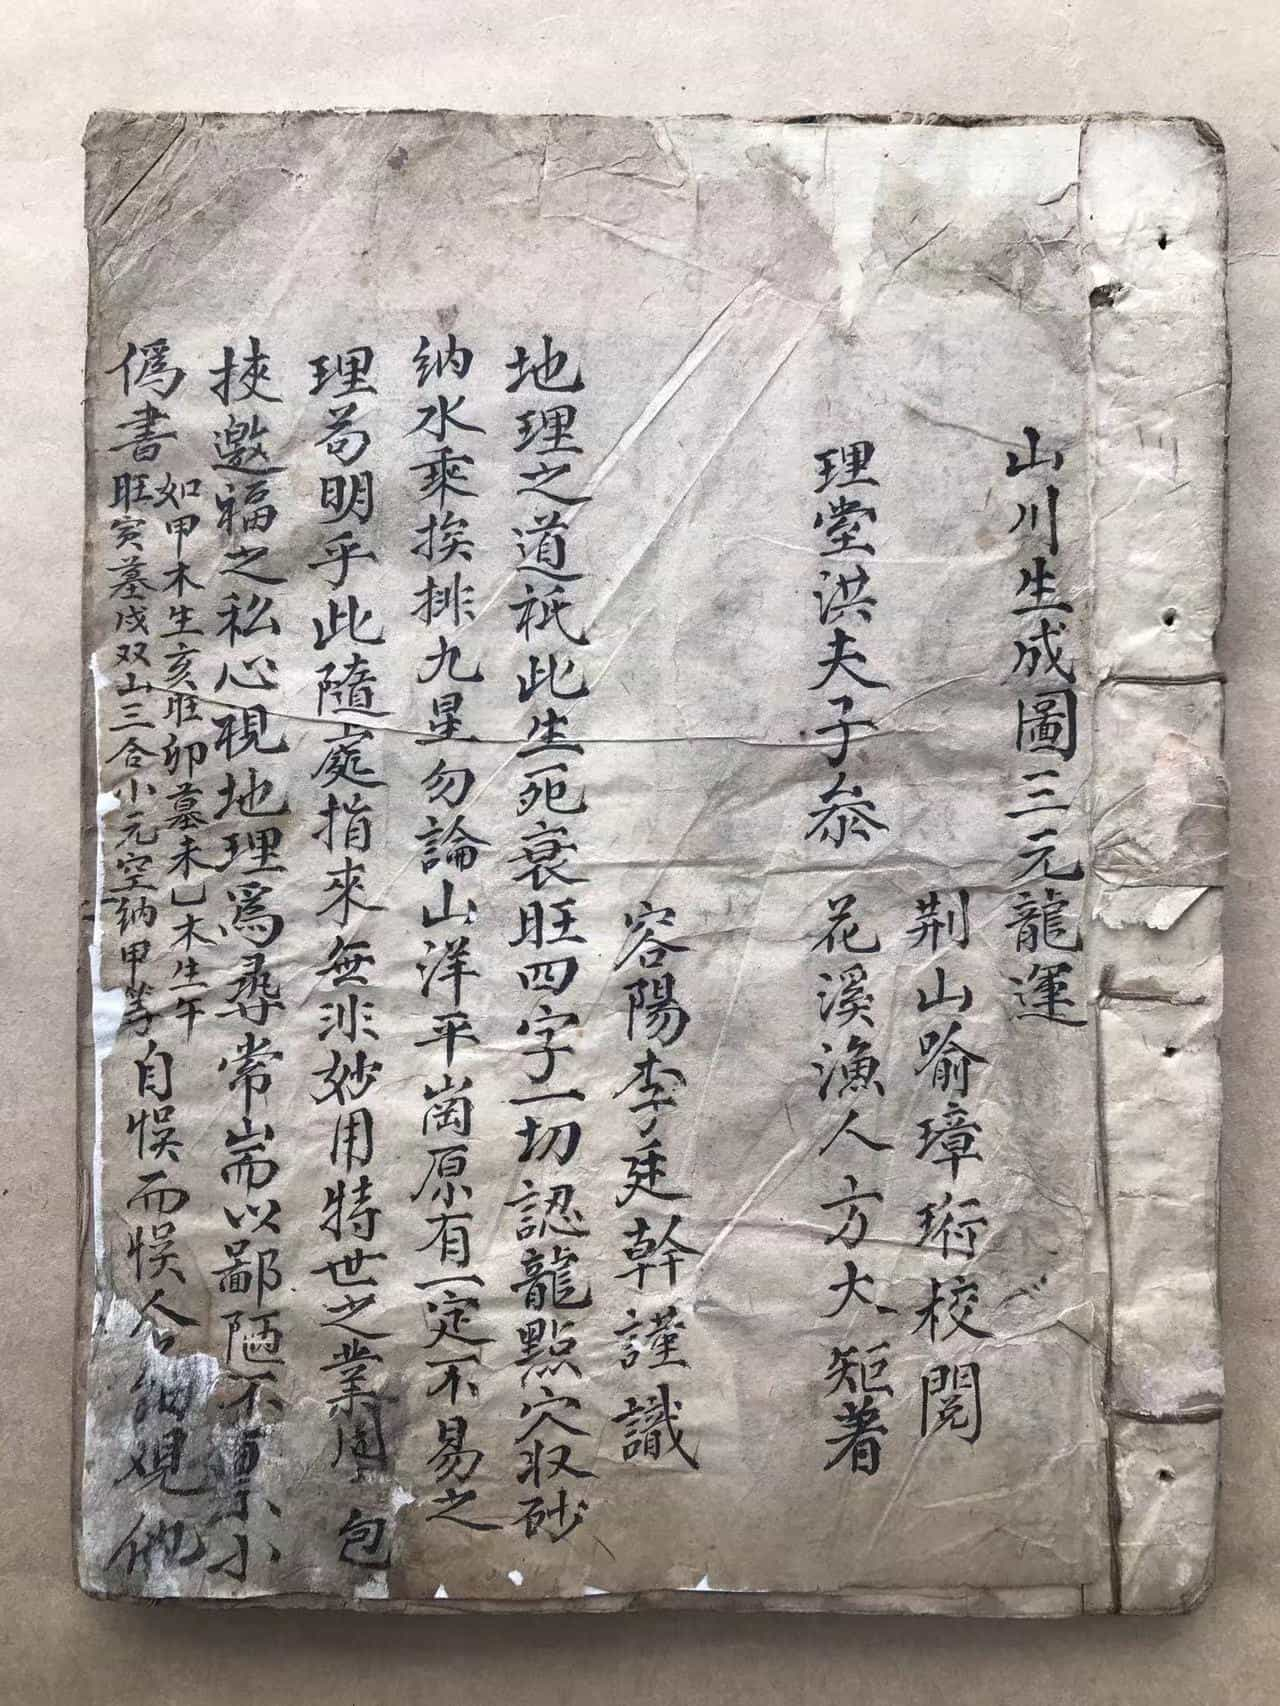 山川生成圖三元龍運
荆山喻璋珩校閱
理堂洪夫子叅 花溪漁人方大矩著
容陽李廷幹謹識
地理之道祇此生死衰旺四字一切認龍點穴収砂
納水乘挨排九星勿論山洋平崗原有一定不易之
理苟明乎此隨處指來無非妙用特世之業 包
挾邀福之私心視地理爲尋常耑以鄙陋不 小
僞書
如甲木生亥旺卯墓未乙木生午
旺寅墓戌双山三合小元空纳甲等
自悞而悞人 觀他